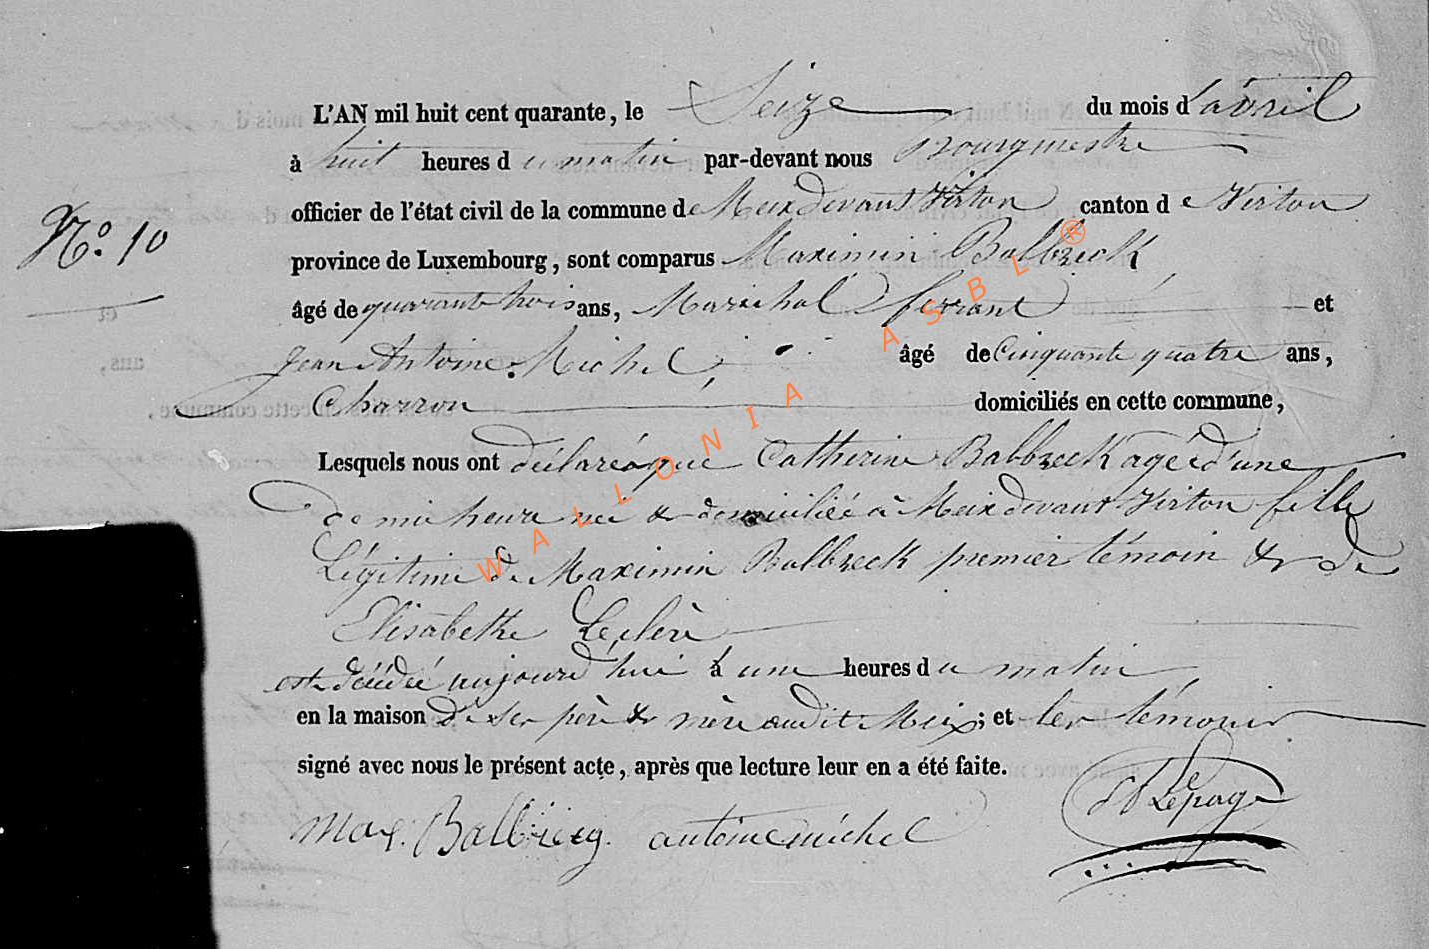 L'AN mil huit cent quarante, le Seize du mois d'avril
à huit heures du matin par-devant nous Bourgmestre
officier de l'état civil de la commune de Meix devant Virton canton de Virton
N.º 10
province de Luxembourg, sont comparus Maximin Balbreck
âgé de quarante trois ans, Marechal ferrant et
Jean Antoine Michel, âgé de Cinquante quatre ans,
Charron domiciliés en cette commune,
Lesquels nous ont déclaré que Catherine Balbreck agée d'une
demie heure née & domiciliée à Meix devant Virton fille
Légitime de Maximin Balbreck premier témoin & de
Elisabethe Leclere
est décédée aujourd'hui à une heures du matin
en la maison de ses père & mère audit Meix; et les témoins
signé avec nous le présent acte, après que lecture leur en a été faite.
Max. Balbrecq. antoine michel Lepage
WALLONIA ASBL ®